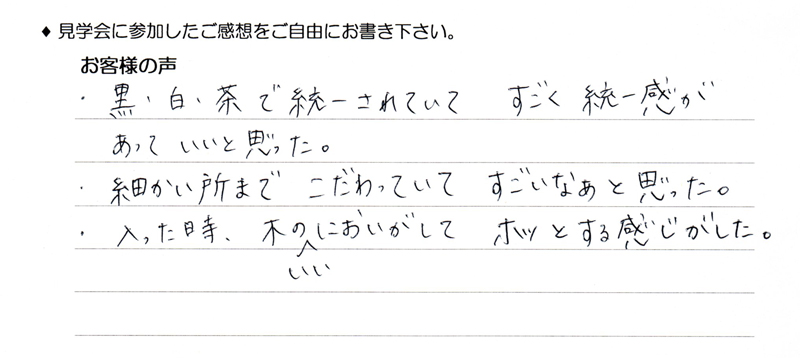 ◆ 見学会に参加したご感想をご自由にお書き下さい。
お客様の声
・黒・白・茶で統一されていて すごく統一感が
あって いいと思った。
・細かい所まで こだわっていて すごいなあと思った。
・入った時、木のいいにおいがして ホッとする感じがした。